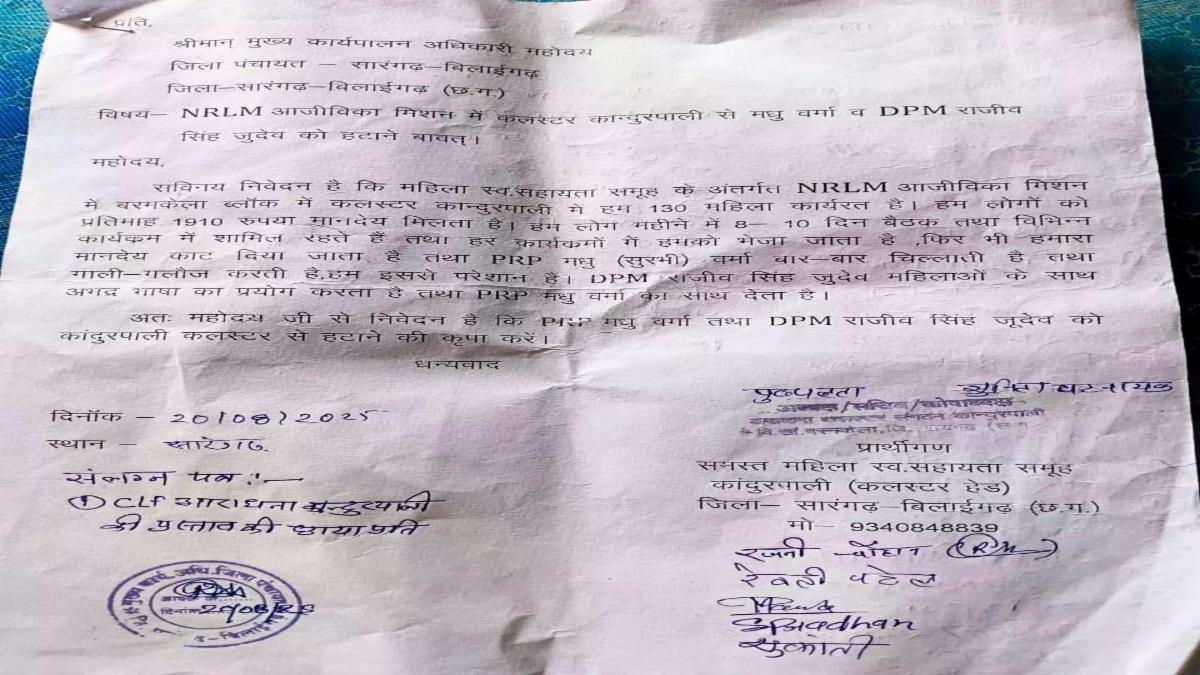 प्रति,
श्रीमान् मुख्य कार्यपालन अधिकारी महोदय
जिला पंचायत – सारंगढ़–बिलाईगढ़
जिला–सारंगढ़–बिलाईगढ़ (छ.ग.)
विषय– NRLM आजीविका मिशन में कलस्टर कान्दुरपाली से मधु वर्मा व DPM राजीव
सिंह जुदेव को हटाने बावत्।
महोदय,
सविनय निवेदन है कि महिला स्व.सहायता समूह के अंतर्गत NRLM आजीविका मिशन
में बरमकेला ब्लॉक में कलस्टर कान्दुरपाली मे हम 130 महिला कार्यरत है। हम लोगों को
प्रतिमाह 1910 रुपया मानदेय मिलता है। हम लोग महीने में 8– 10 दिन बैठक तथा विभिन्न
कार्यक्रम में शामिल रहते हैं तथा हर कार्यकमों में हमको भेजा जाता है ,फिर भी हमारा
मानदेय काट दिया जाता है तथा PRP मधु (सुरभी) वर्मा बार–बार चिल्लाती है तथा
गाली–गलौज करती है,हम इससे परेशान है। DPM राजीव सिंह जुदेव महिलाओं के साथ
अभद्र भाषा का प्रयोग करता है तथा PRP मधु वर्मा का साथ देता है।
अतः महोदय जी से निवेदन है कि PRP मधु वर्मा तथा DPM राजीव सिंह जूदेव को
कांदुरपाली कलस्टर से हटाने की कृपा करें।
धन्यवाद
दिनॉक – 20/08/2025
स्थान – सारंगढ़
संलग्न पत्र :–
① CLF आराधना कान्दुरपाली
की प्रस्ताव की छायाप्रति
पुष्पलता
अध्यक्ष/सचिव/कोषाध्यक्ष
प्रार्थीगण
समस्त महिला स्व.सहायता समूह
कांदुरपाली (कलस्टर हेड)
जिला– सारंगढ़–बिलाईगढ़ (छ.ग.)
मो– 9340848839
रजनी चौहान
रेवती पटेल
SPradhan
सुकांती
20/08/25